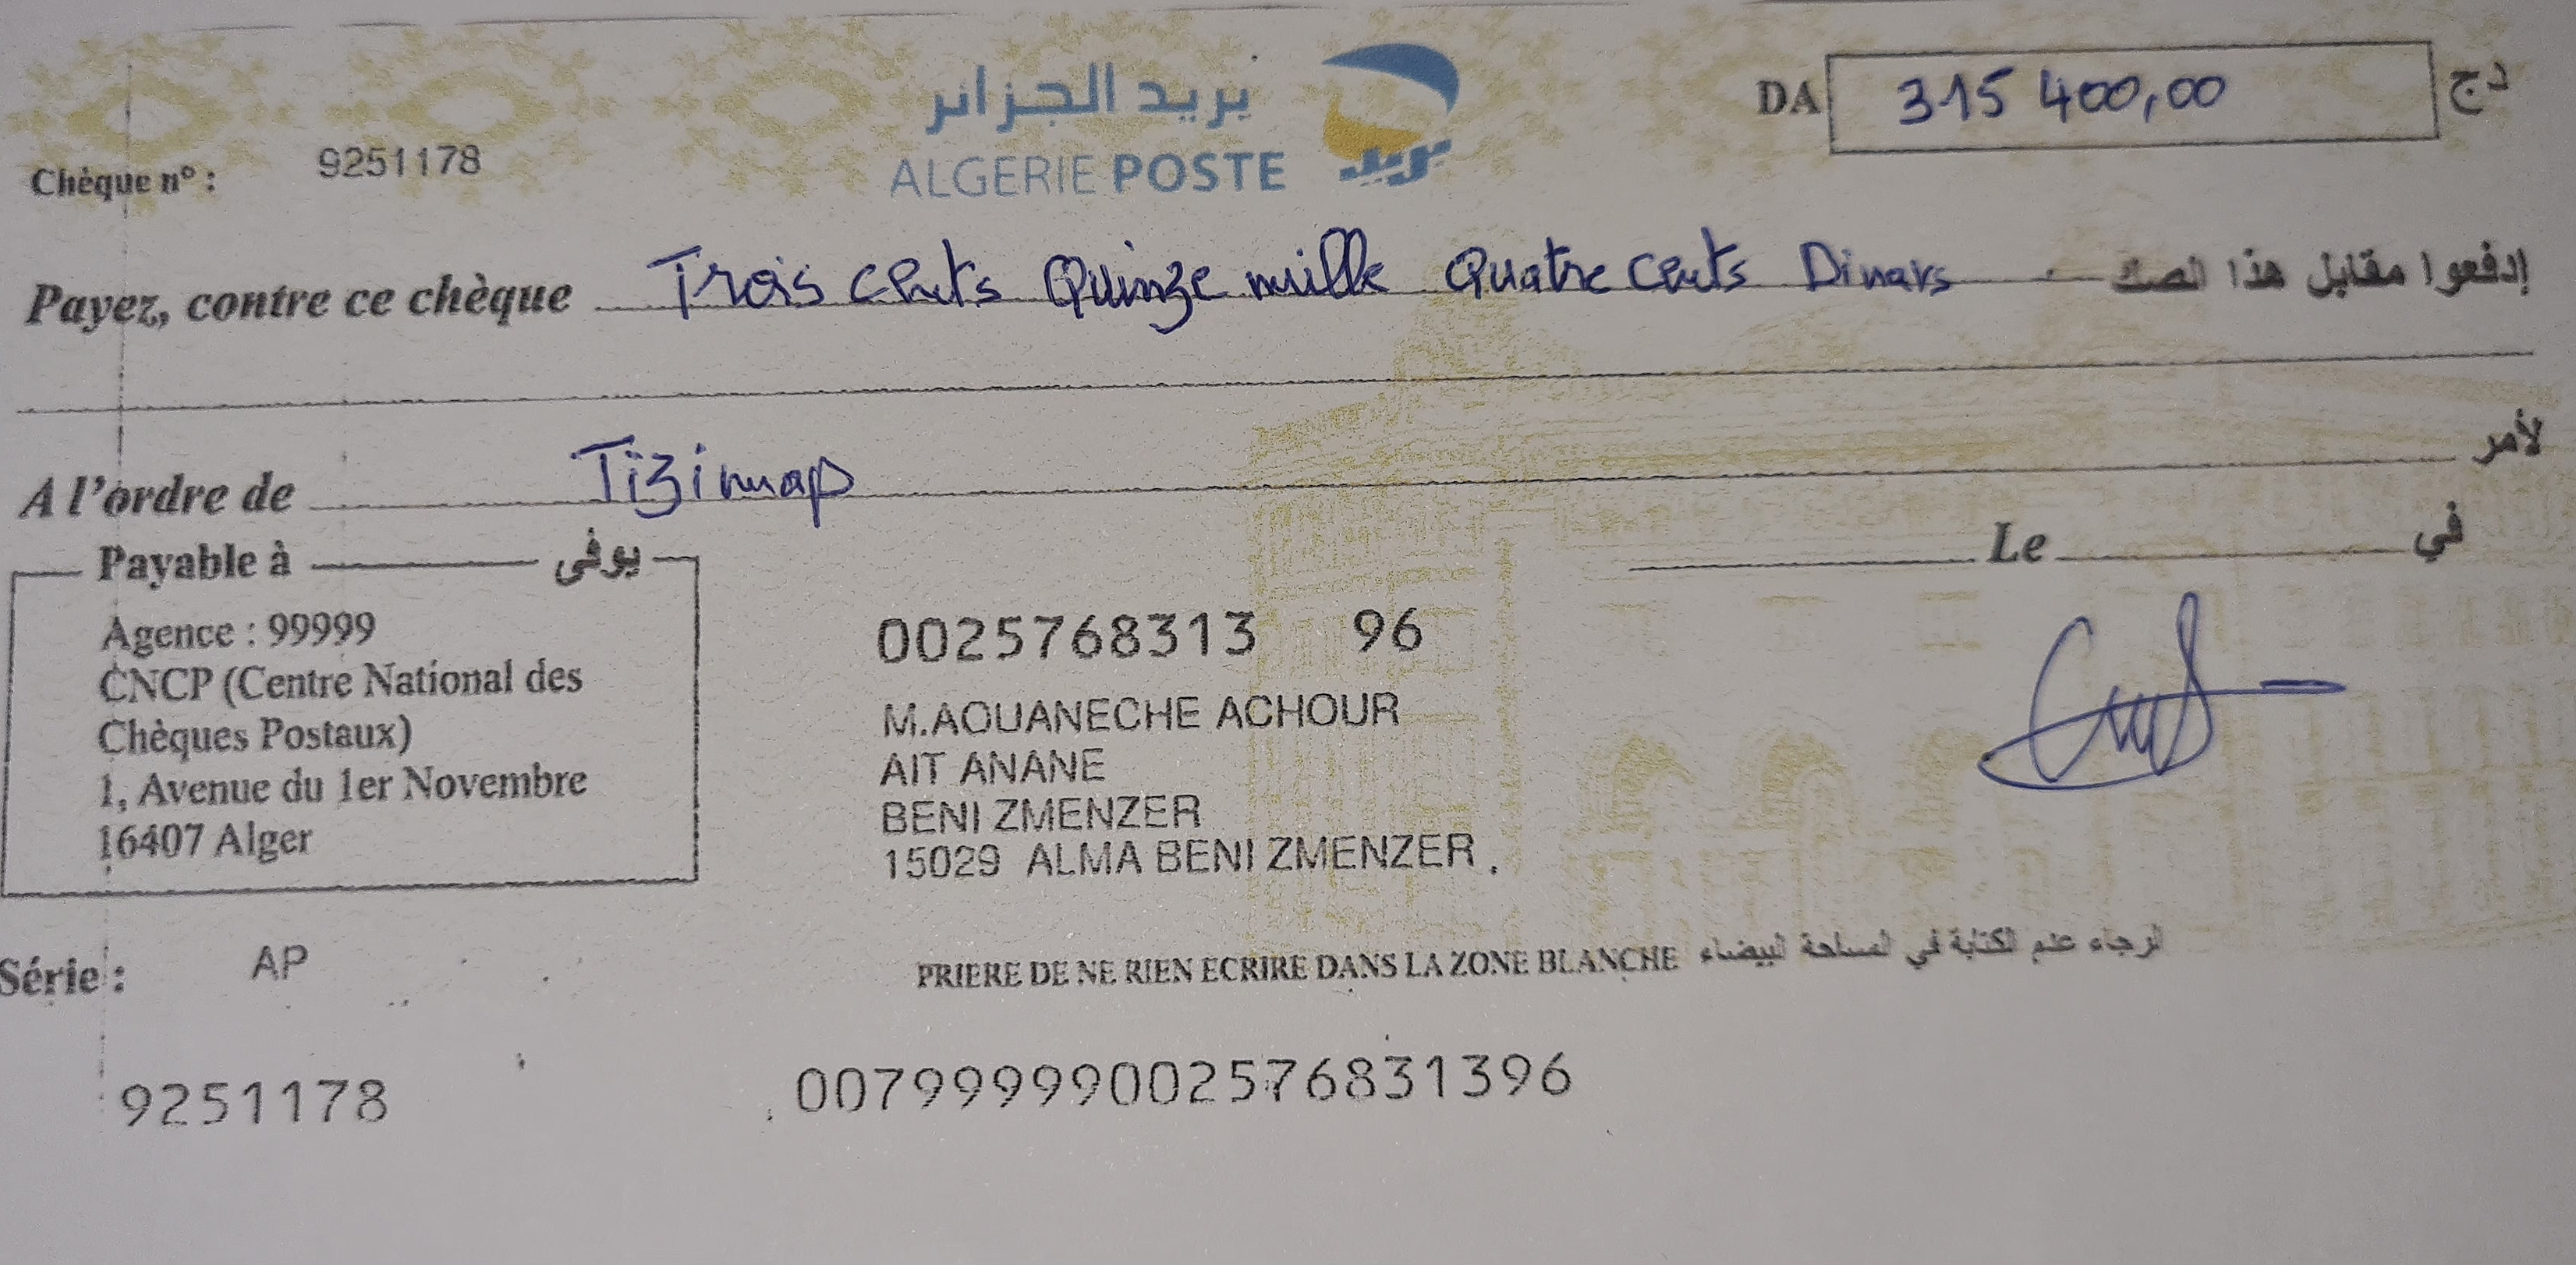 بريد الجزائر
ALGERIE POSTE
بريد
DA 315 400,00 دج
Chèque n° : 9251178
Payez, contre ce chèque Trois cents Quinze mille Quatre cents Dinars إدفعوا مقابل هذا الصك
A l'ordre de Tizimap لأمر
Le في
Payable à يوفى
Agence : 99999
CNCP (Centre National des
Chèques Postaux)
1, Avenue du 1er Novembre
16407 Alger
0025768313 96
M.AOUANECHE ACHOUR
AIT ANANE
BENI ZMENZER
15029 ALMA BENI ZMENZER
Série : AP
PRIERE DE NE RIEN ECRIRE DANS LA ZONE BLANCHE الرجاء عدم الكتابة في المساحة البيضاء
9251178 00799999002576831396